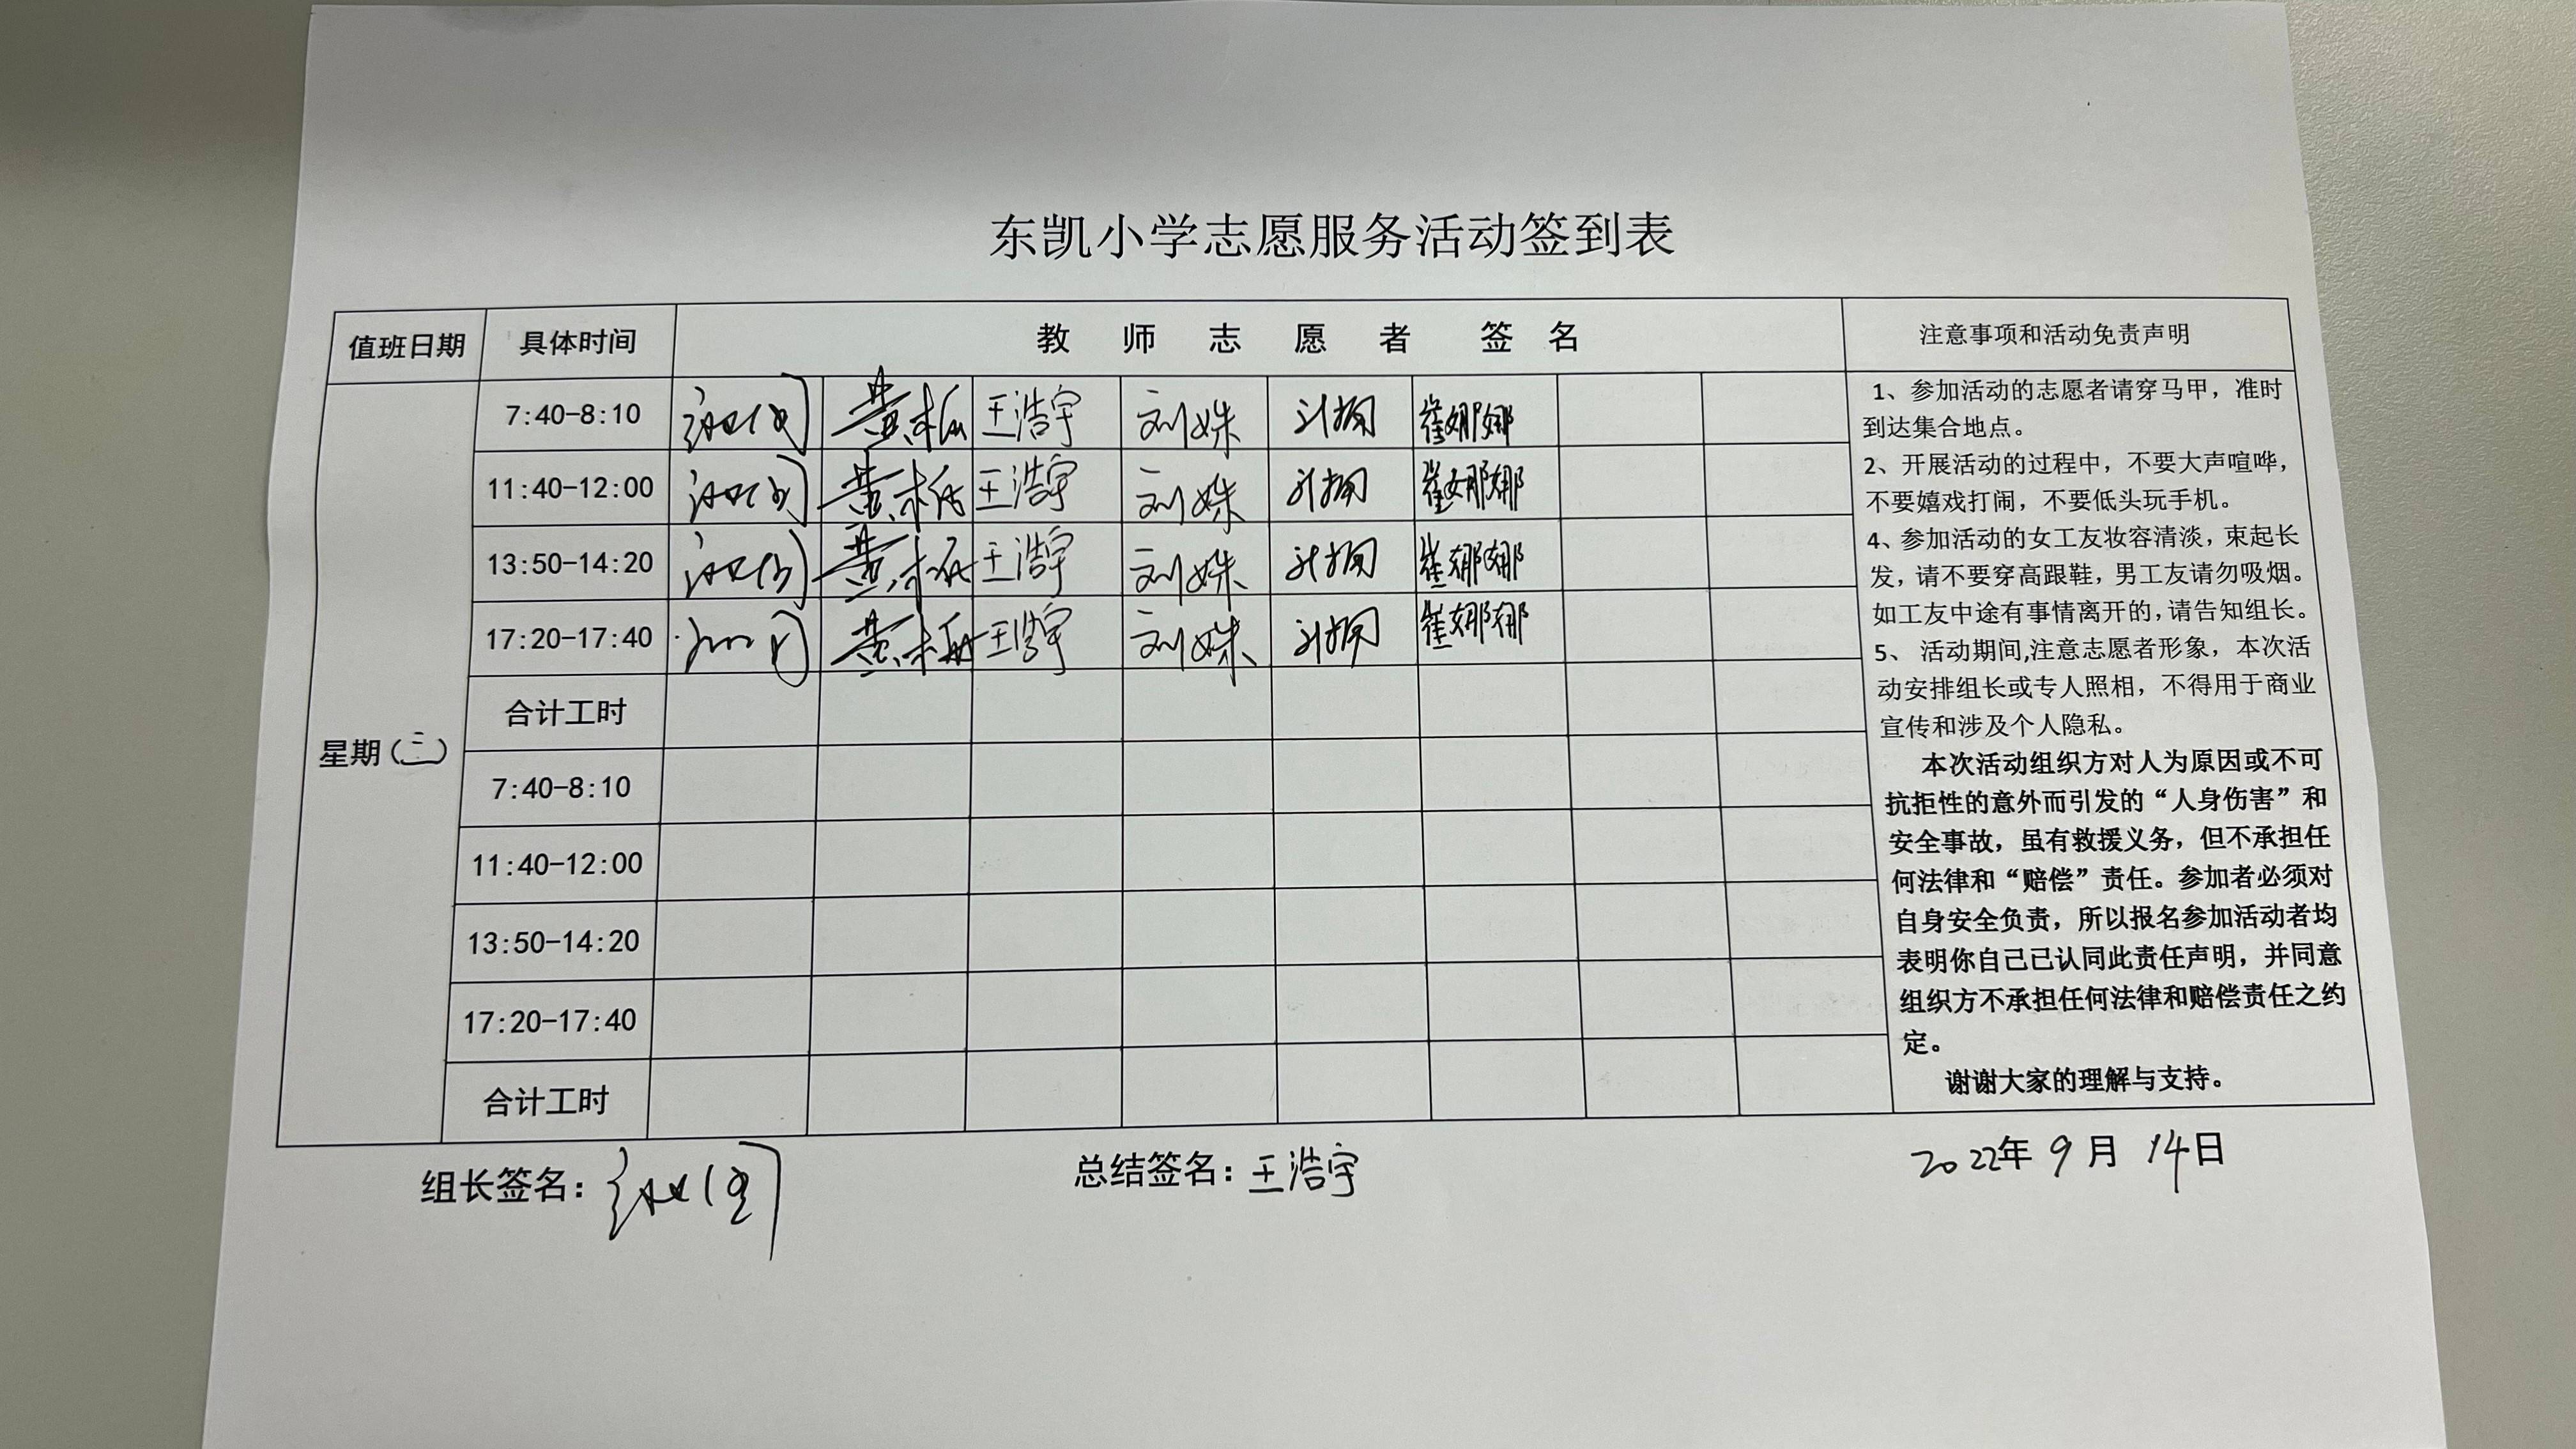 东凯小学志愿服务活动签到表
值班日期 具体时间 教 师 志 愿 者 签 名 注意事项和活动免责声明
7:40-8:10 王浩宇 刘姝 崔娜娜
11:40-12:00 王浩宇 刘姝 崔娜娜
13:50-14:20 王浩宇 刘姝 崔娜娜
17:20-17:40 王浩宇 刘姝 崔娜娜
合计工时
星期(三)
7:40-8:10
11:40-12:00
13:50-14:20
17:20-17:40
合计工时
1、参加活动的志愿者请穿马甲，准时
到达集合地点。
2、开展活动的过程中，不要大声喧哗，
不要嬉戏打闹，不要低头玩手机。
4、参加活动的女工友妆容清淡，束起长
发，请不要穿高跟鞋，男工友请勿吸烟。
如工友中途有事情离开的，请告知组长。
5、 活动期间,注意志愿者形象，本次活
动安排组长或专人照相，不得用于商业
宣传和涉及个人隐私。
本次活动组织方对人为原因或不可
抗拒性的意外而引发的“人身伤害”和
安全事故，虽有救援义务，但不承担任
何法律和“赔偿”责任。参加者必须对
自身安全负责，所以报名参加活动者均
表明你自己已认同此责任声明，并同意
组织方不承担任何法律和赔偿责任之约
定。
谢谢大家的理解与支持。
组长签名： 总结签名：王浩宇 2022年 9月 14日